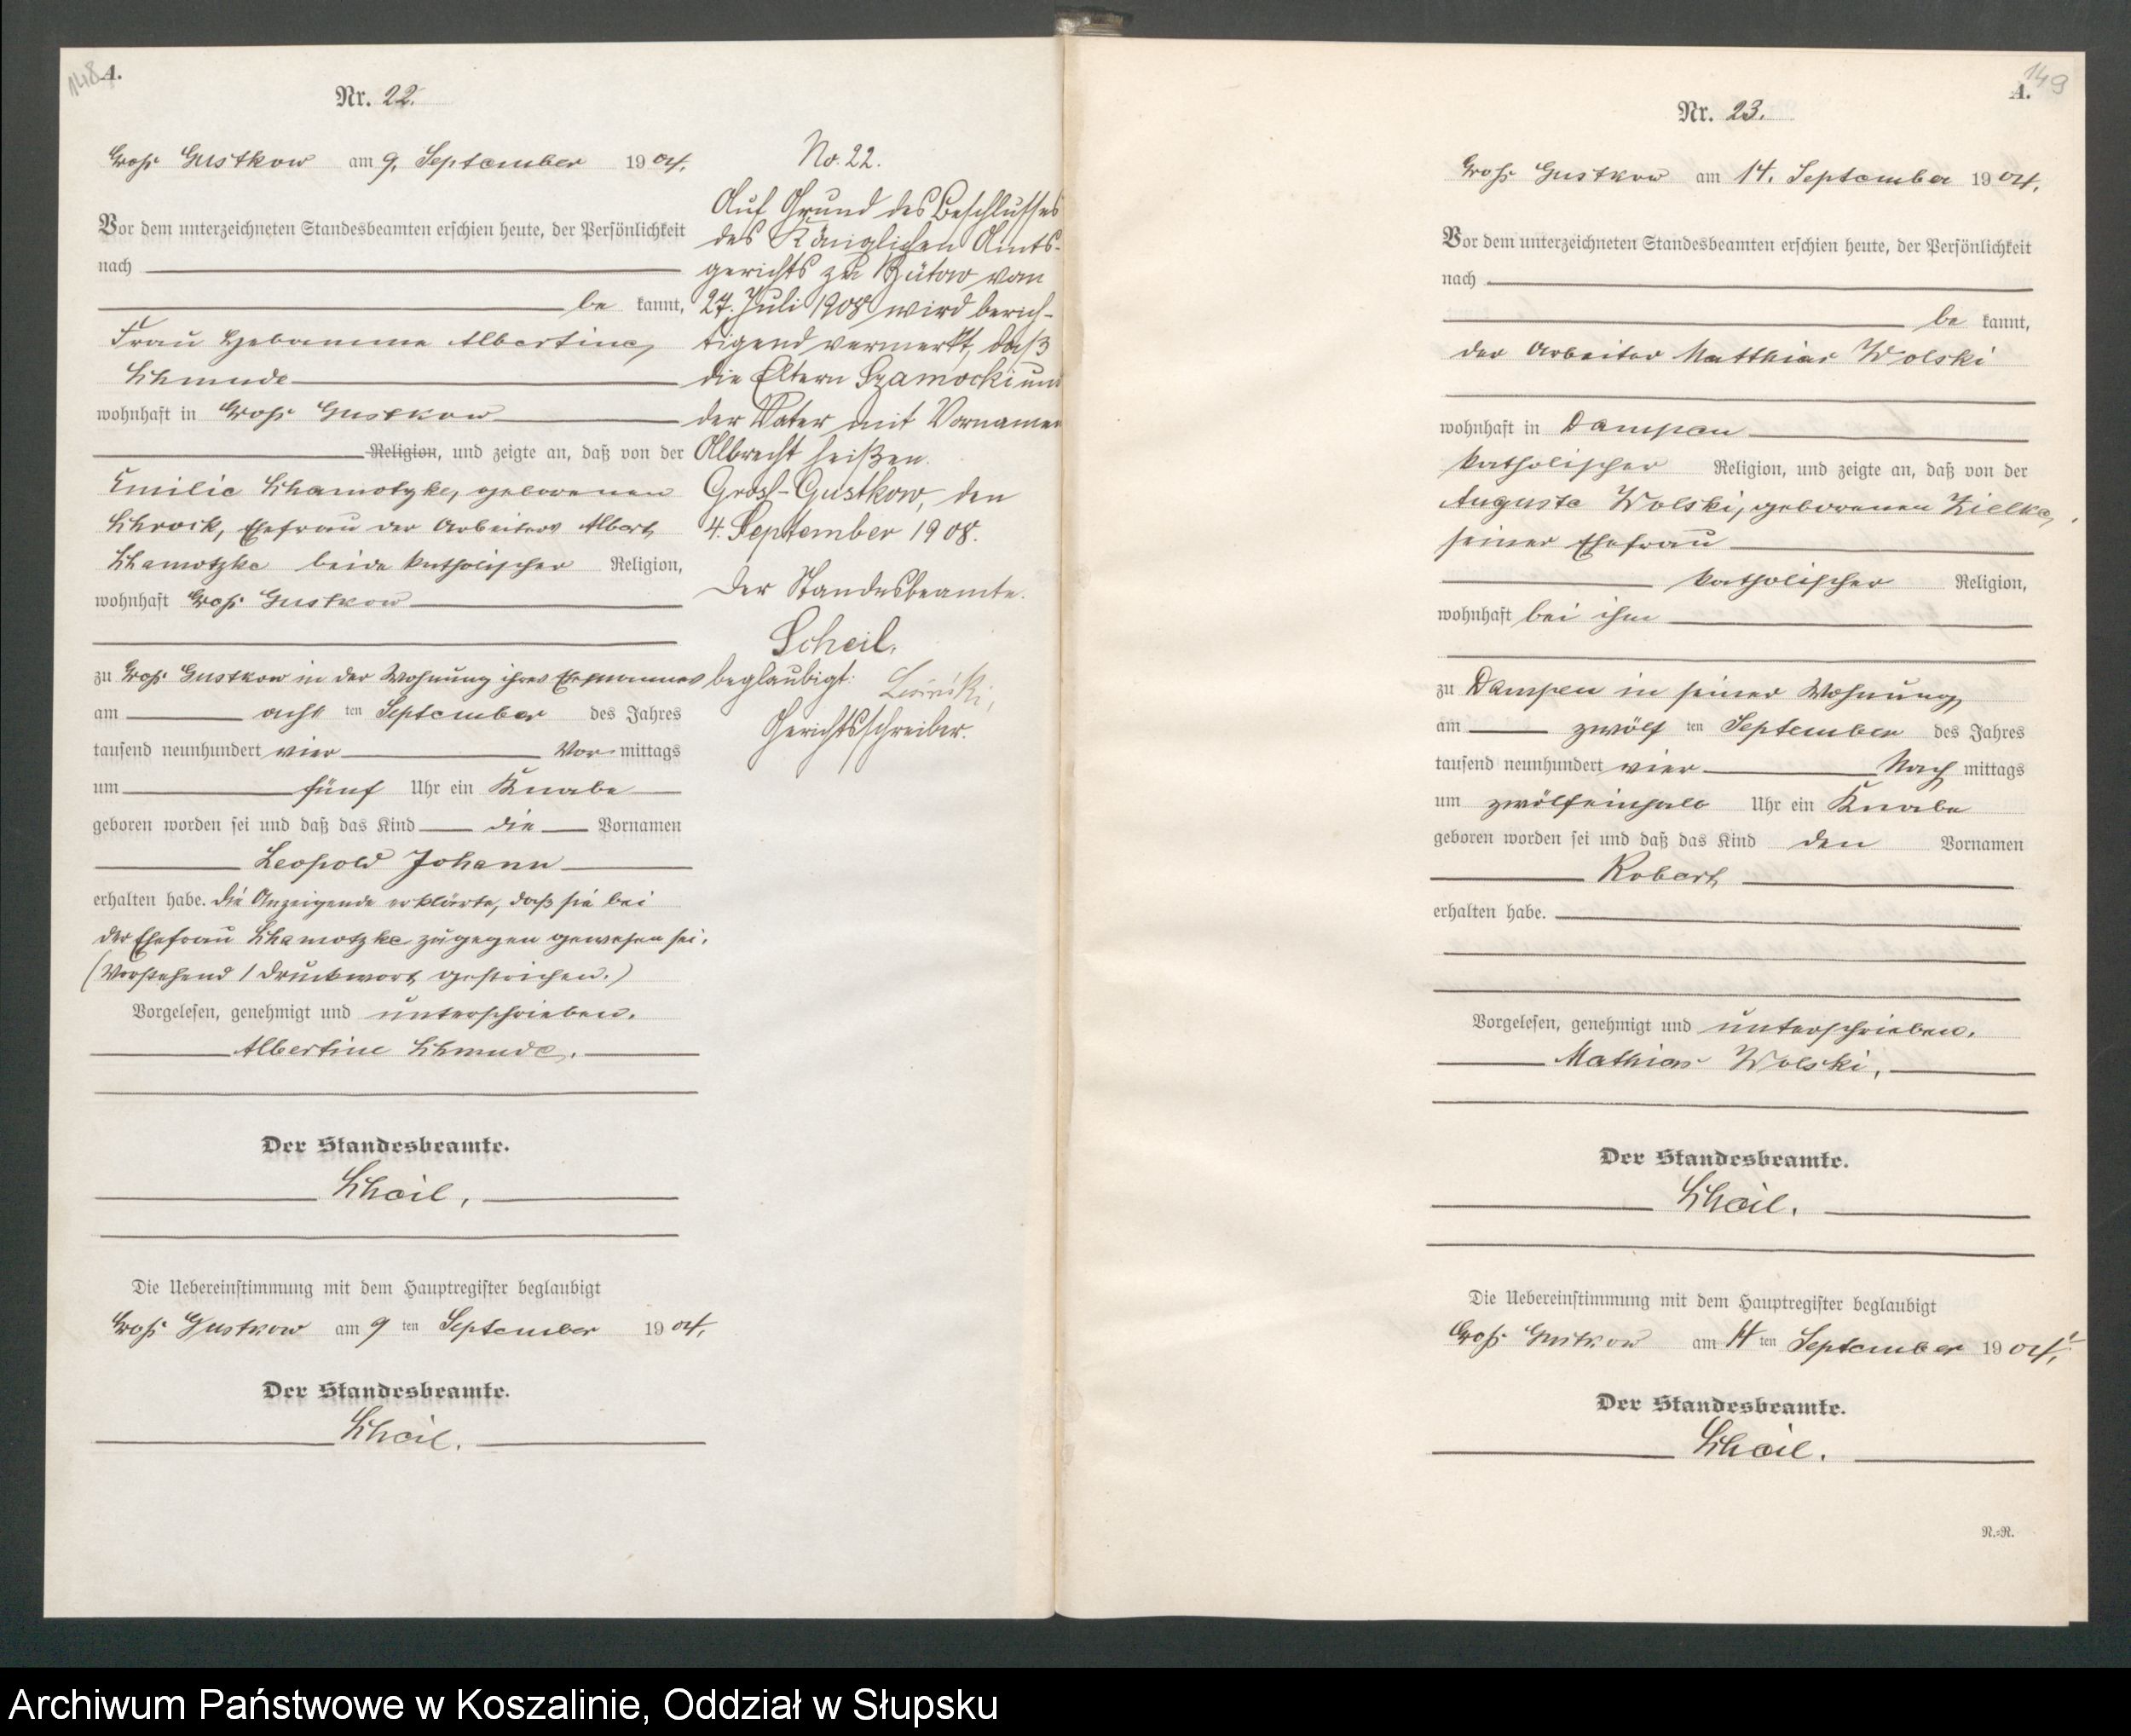 148
A.
Nr. 22.
Groß Gustkow am 9. September 1904.
Vor dem unterzeichneten Standesbeamten erschien heute, der Persönlichkeit
nach
be kannt,
Frau Hebamme Albertine
Schmude
wohnhaft in Groß Gustkow
Religion, und zeigte an, daß von der
Emilie Schamotzke, geborenen
Schrock, Ehefrau des Arbeiters Albert
Schamotzke beide katholischer Religion,
wohnhaft Groß Gustkow
zu Groß Gustkow in der Wohnung ihres Ehemannes
am acht ten September des Jahres
tausend neunhundert vier Vor mittags
um fünf Uhr ein Knabe
geboren worden sei und daß das Kind die Vornamen
Leopold Johann
erhalten habe. Die Anzeigende erklärte, daß sie bei
der Ehefrau Schamotzke zugegen gewesen sei.
(Vorstehend 1 Druckwort gestrichen.)
Vorgelesen, genehmigt und unterschrieben.
Albertine Schmude.
Der Standesbeamte.
Scheil.
Die Uebereinstimmung mit dem Hauptregister beglaubigt
Groß Gustkow am 9 ten September 1904.
Der Standesbeamte.
Scheil.
No. 22.
Auf Grund des Beschlusses
des Königlichen Amts-
gerichts zu Bütow vom
27. Juli 1908 wird berich-
tigend vermerkt, daß
die Eltern Szamocki und
der Vater mit Vornamen
Albrecht heißen.
Groß-Gustkow, den
4. September 1908.
Der Standesbeamte.
Scheil.
beglaubigt:
Gerichtsschreiber.
149
A.
Nr. 23.
Groß Gustkow am 14. September 1904.
Vor dem unterzeichneten Standesbeamten erschien heute, der Persönlichkeit
nach
be kannt,
der Arbeiter Matthias Wolski
wohnhaft in Dampen
katholischer Religion, und zeigte an, daß von der
Auguste Wolski, geborenen Zielke,
seiner Ehefrau
katholischer Religion,
wohnhaft bei ihm
zu Dampen in seiner Wohnung
am zwölf ten September des Jahres
tausend neunhundert vier Nach mittags
um zwölfeinhalb Uhr ein Knabe
geboren worden sei und daß das Kind den Vornamen
Robert
erhalten habe.
Vorgelesen, genehmigt und unterschrieben.
Mathias Wolski.
Der Standesbeamte.
Scheil.
Die Uebereinstimmung mit dem Hauptregister beglaubigt
Groß Gustkow am 14 ten September 1904.
Der Standesbeamte.
Scheil.
N.=R.
Archiwum Państwowe w Koszalinie, Oddział w Słupsku